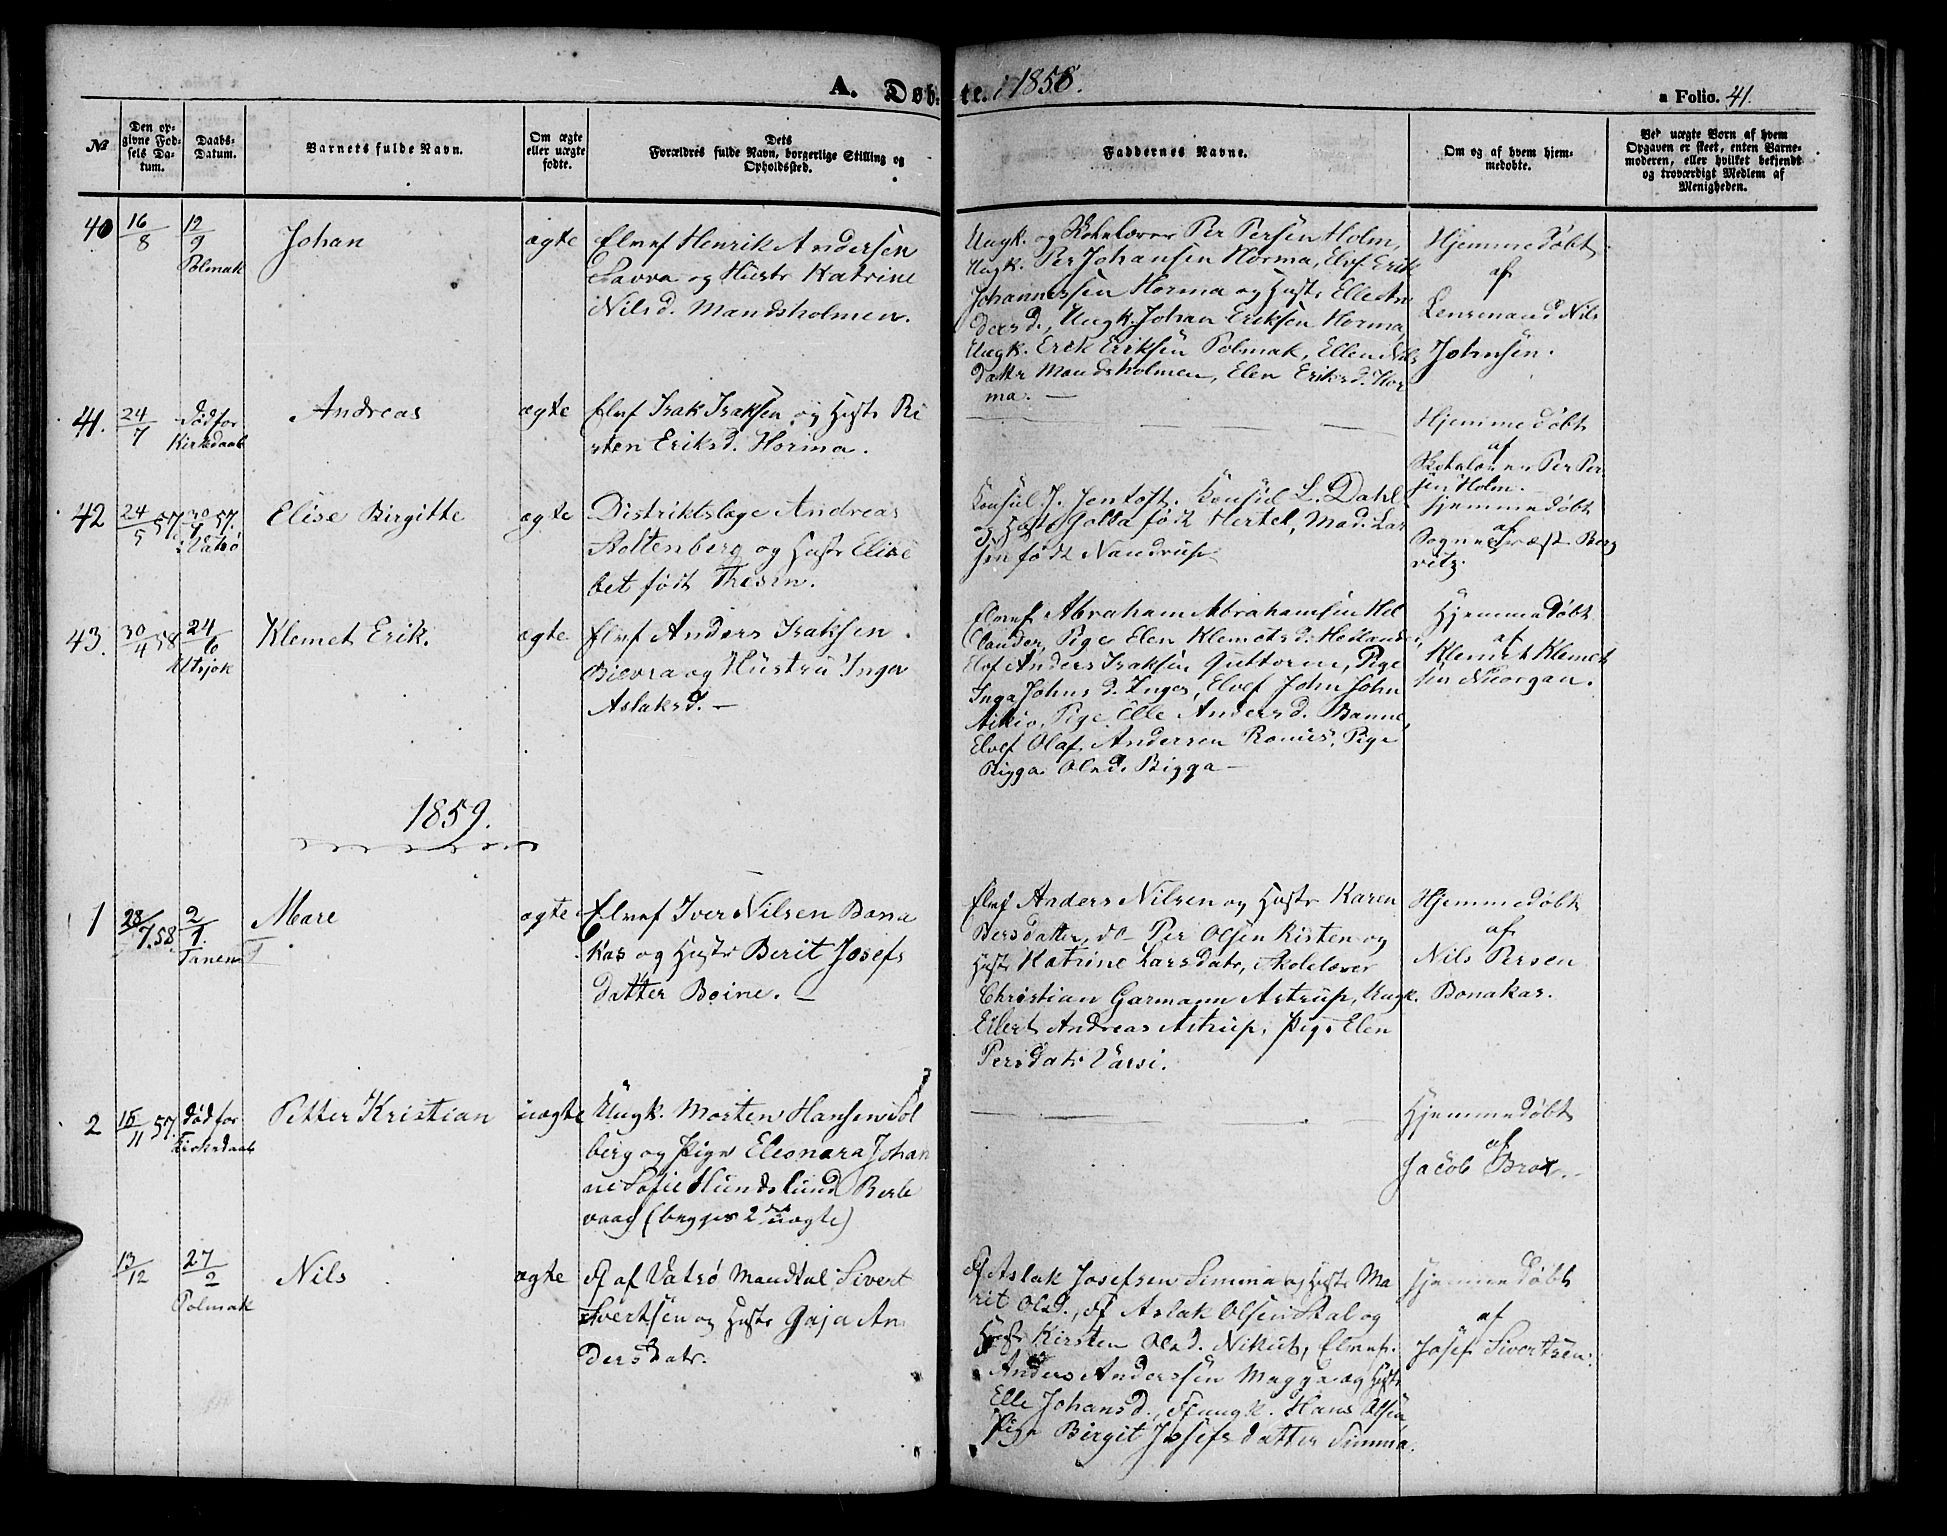 A. Døbte. 1858.
a Folio. 41.
№
Den opgivne Fødsels Datum.
Daabs-Datum.
Barnets fulde Navn.
Om ægte eller uægte fødte.
Dets Forældres fulde Navn, borgerlige Stilling og Opholdssted.
Faddernes Navne.
Om og af hvem hjemmedøbte.
Ved uægte Børn af hvem Opgaven er skeet, enten Barnemoderen, eller hvilket bekjendt og troværdigt Medlem af Menigheden.
40
16/8
12/9
Polmak
Johan
ægte
Elvef Henrik Andersen
Savva og Hustr Katrine
Nilsd. Mandsholmen.
Ungk. og Skolelærer Per Persen Holm,
Ungk. Per Johansen Horma, Elvf Erik
Johannessen Horma og Hustr Elle An
dersd., Ungk. Johan Eriksen Horma
Ungk. Erik Eriksen Polmak, Ellen Nils
datter Mandsholmen, Elen Eriksd. Hor
ma. —
Hjemmedøbt
af
Lensmand Nils
Johnsen.
41.
24/7
død før
Kirkedaab
Andreas
ægte
Elvf Isak Isaksen og Hustr Ki
rsten Eriksd. Horma.
Hjemmedøbt
af
Skolelærer Per Per
sen Holm.
42
24/5 57.
30/7 57.
i Vadsø
Elise Birgitte
ægte
Distriktslæge Andreas
Stoltenberg og Hustr Elisa
bet født Thesen.
Konsul J. Jentoft. Konsul L. Dahl
og Hustr Golla født Hertel, Mad. Lar
sen født Nandrup
Hjemmedøbt
af
Sognepræst Borg
vitz.
43.
30/4 58
24/6
Utsjok
Klemet Erik.
ægte
Elvf Anders Isaksen
Bievra og Hustru Inga
Aslaksd. —
Elvef Abraham Abrahamsen Hel
lander, Pige Elen Klemetsd. Helland
Elvf Anders Isaksen Guttorm, Pige
Inga Johns d. Inger, Elvef John John
Aikio, Pige Elle Andersd. Banne,
Elvef Olaf Andersen Ronus, Pige
Rigga Olsd. Bigga —
Hjemmedøbt
af
Klemet Klemet
sen Nuorgan.
1859.
1
28/7.58
2/1.
Tanen
Mare
ægte
Elvef Iver Nilsen Bona
kas og Hustr Berit Josefs
datter Boine. —
Elvf Anders Nilsen og Hustr Karen
Persdatter, do Per Olsen Kisten og
Hustr Katrine Larsdatr, Skolelærer
Christian Garmann Astrup, Ungk.
Eilert Andreas Astrup, Pige Elen
Persdatr Varsi.
Hjemmedøbt
af
Nils Persen
Bonakas.
2
18/11 57.
død før
Kirkedaab
Petter Kristian
uægte
Ungk. Morten Hansen Sol
berg og Pige Eleonara Johan
ne Sofie Hundslund Berle
vaag (begges 2det uægte)
Hjemmedøbt
af
Jacob Brox.
13/12
27/2
Polmak
Nils
ægte
Ff af Vadsø Mandtal Sivert
Sivertsen og Hustr Gaja An
dersdatr.
Ff Aslak Josefsen Simma og Hustr Ma
rit Olsd., Ff Aslak Olsen Skal og
Hustr Kirsten Olsd. Nikut, Elvef
Anders Anderssen Magga og Hustr
Elle Johansd., Ff ungk. Hans Olsen
Pige Birgit Josefsdatter Simma.
Hjemmedøbt
af
Josef Sivertsen.